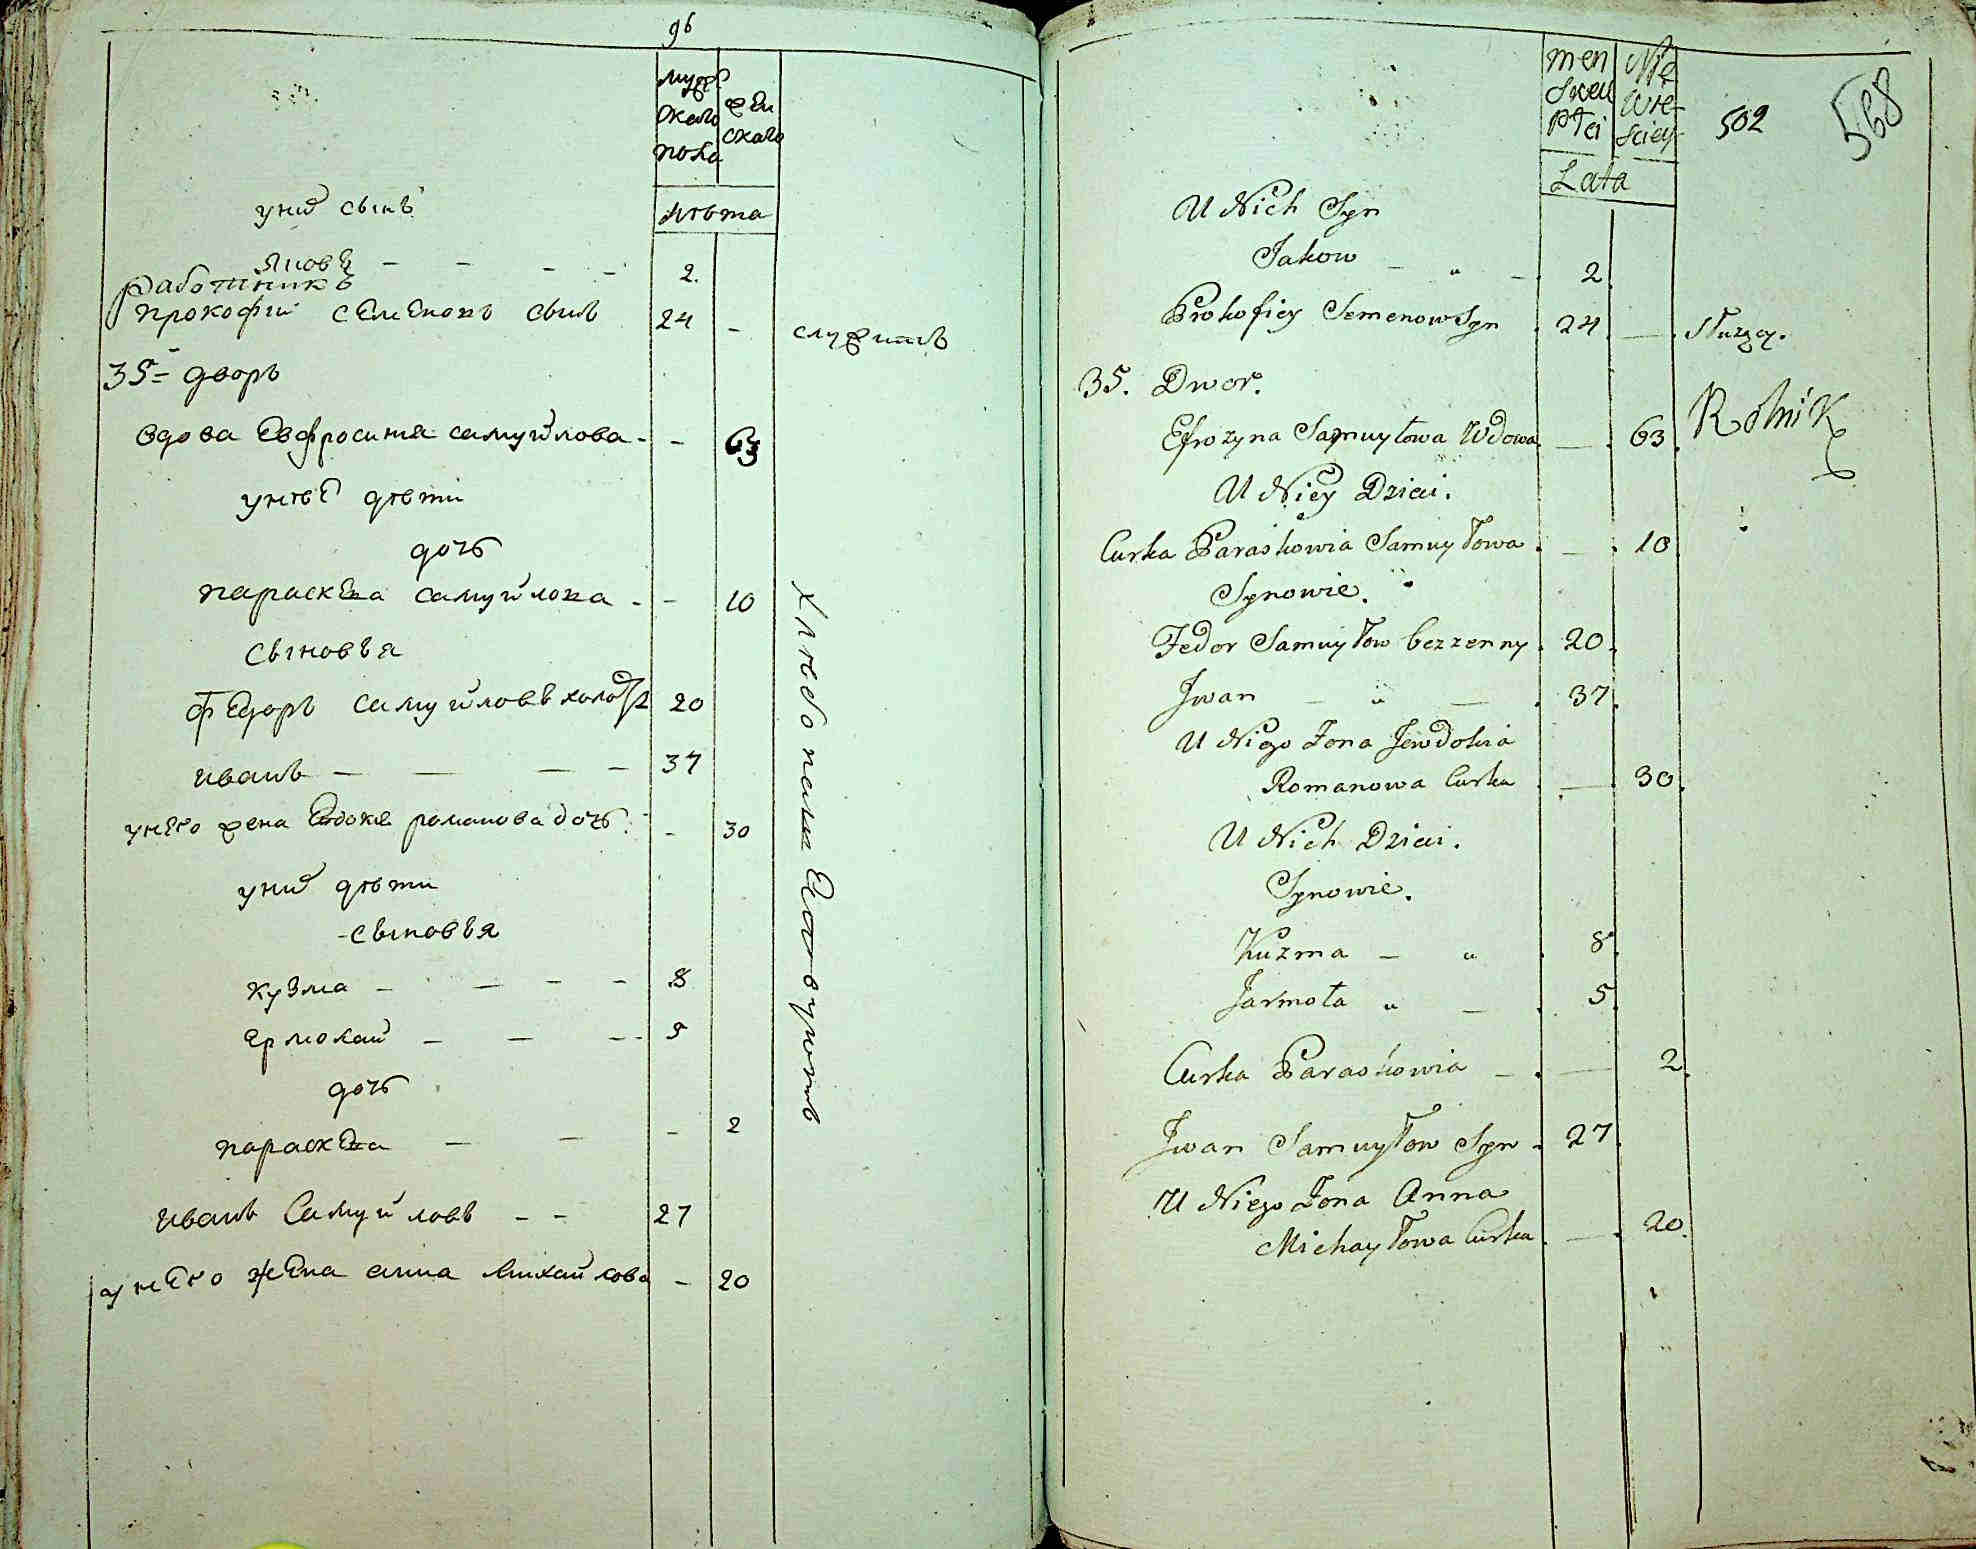 96
муж
скаго
пола
жен
скаго
лѣта
у них сынъ
яковъ - - - - 2.
работникъ
прокофiй семеновъ сынъ 24 - служитъ
35= дворъ
вдова Евфросинiя самуйлова - - 63
у нѣе дѣти
дочь
параскева самуйлова - - 10
сыновья
федоръ самуйловъ холостъ 20
иванъ - - - - 37
у него жена Евдокiя романова дочь - 30
у них дѣти
-сыновья
кузма - - - - 8
ермолай - - - - 5
дочь
параскева - - - 2
иванъ Самуйловъ - - 27
у него жена анна михайлова - 20
Хлѣбопашествуютъ
men
skeu
płci
Nie
wie-
sciey
Lata
502
568
U Nich Syn
Jakow - " - 2
Prokofiey Semenow Syn . 24 — Służący.
35. Dwor.
Efrozyna Samuyłowa Wdowa — 63. Rolnik
U Niey Dzieci.
Curka Paraskowia Samuyłowa . — . 10
Synowie.
Fedor Samuyłow bezzenny . 20.
Jwan - " - . 37.
U Niego Zona Jewdokia
Romanowa Curka . — 30.
U Nich Dzieci.
Synowie.
Kuzma - " . 8
Jarmoła " - . 5
Curka Paraskowia - . — 2.
Jwan Samuyłow Syn . 27.
U Niego Zona Anna
Michayłowa Curka . — . 20.